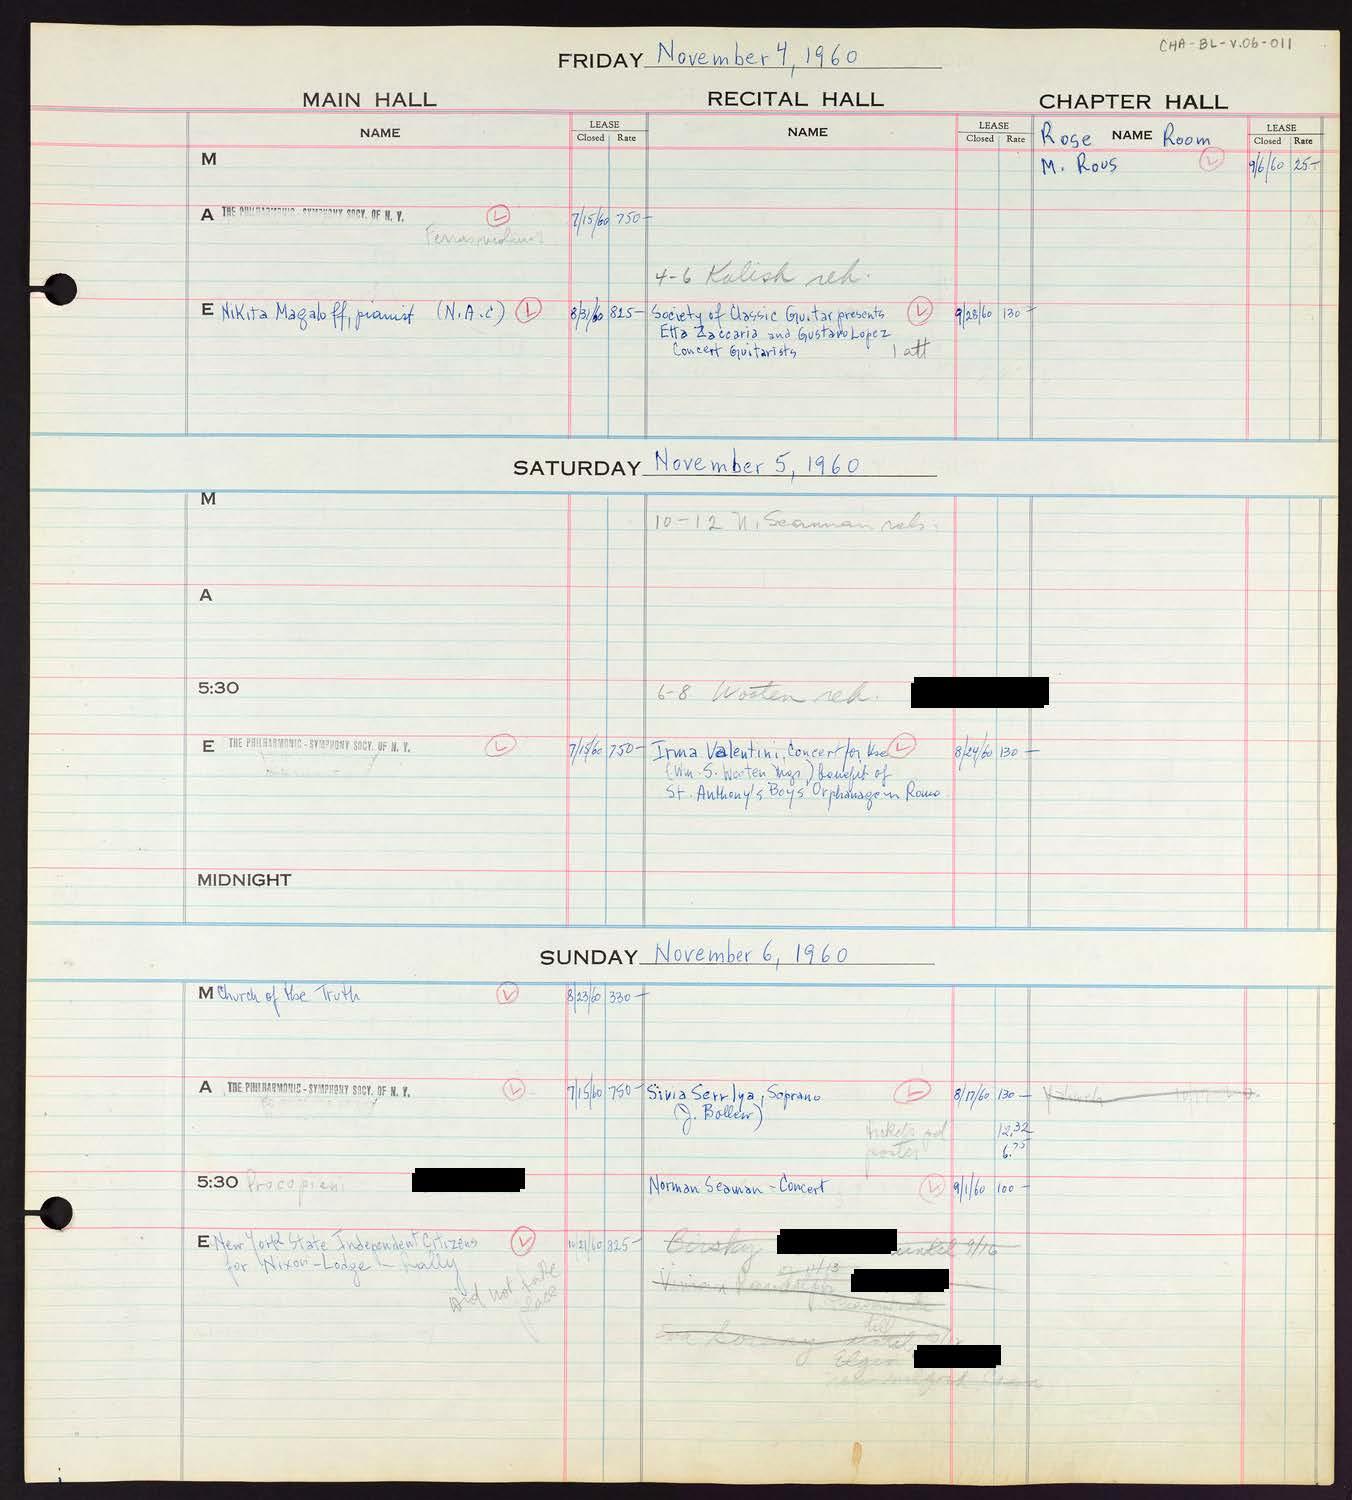 CHA-BL-V.06-011
FRIDAY November 4, 1960
MAIN HALL RECITAL HALL CHAPTER HALL
NAME LEASE Closed Rate NAME LEASE Closed Rate Rose NAME Room LEASE Closed Rate
M M. Rous L 9/6/60 25-
A THE PHILHARMONIC-SYMPHONY SOCY. OF N. Y. L 7/15/60 750-
4-6 Kalish reh.
E Nikita Magaloff, pianist (N.A.C) L 8/31/60 825- Society of Classic Guitar presents L 9/28/60 130-
Etta Zaccaria and Gustavo Lopez
Concert Guitarists 1 att
SATURDAY November 5, 1960
M
10-12 N. Seaman reh.
A
5:30 6-8 Wooten reh.
E THE PHILHARMONIC-SYMPHONY SOCY. OF N. Y. L 7/15/60 750- Irma Valentini, Concert for the L 8/24/60 130-
(Wm. S. Wooten Mgr.) benefit of
St. Anthony's Boys Orphanage in Rome
MIDNIGHT
SUNDAY November 6, 1960
M Church of the Truth L 8/23/60 330-
A THE PHILHARMONIC-SYMPHONY SOCY. OF N. Y. L 7/15/60 750- Sivia Serrlya, Soprano L 8/17/60 130-
(J. Bollew)
tickets and 12.32
poster 6.75
5:30 Procopieni Norman Seaman - Concert L 9/1/60 100-
E New York State Independent Citizens L 10/21/60 825- Birsky until 9/16
for Nixon-Lodge - Rally
or 11/13
did not take
place
till
Elgin